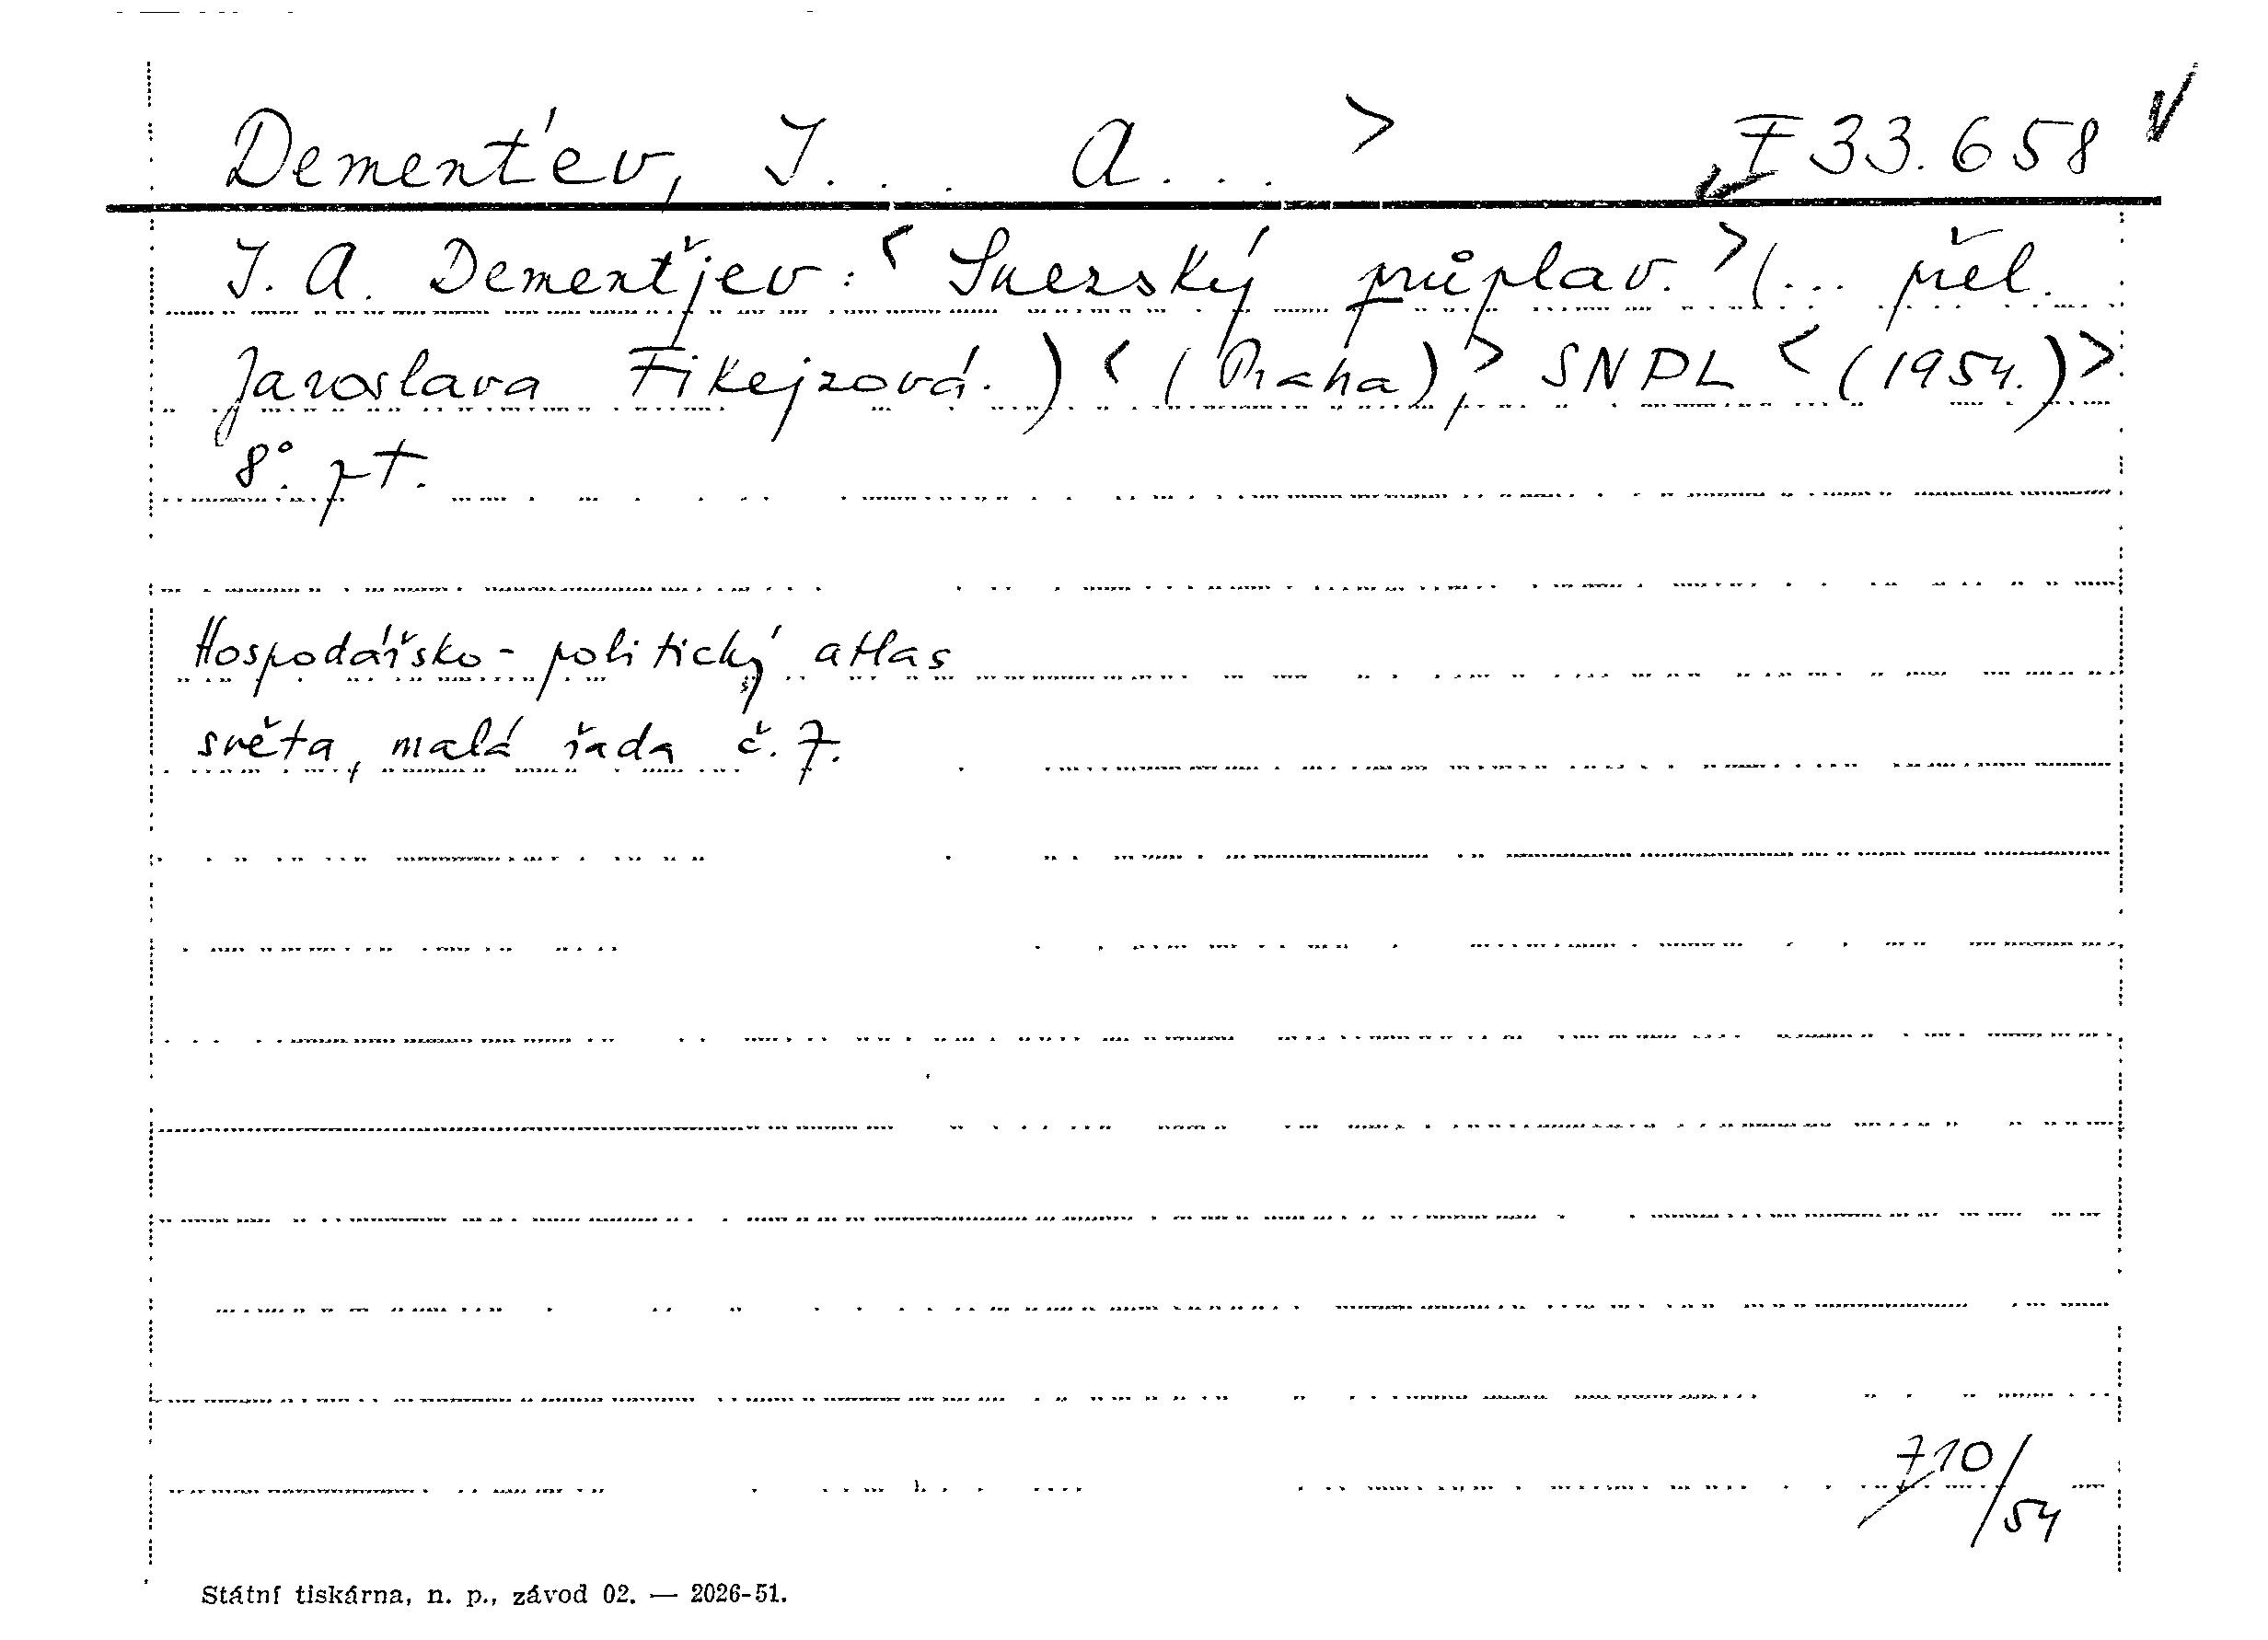 Dement'ev, I... A... > I 33.658
I. A. Dementějev: < Suezský průplav. > (... přel.
Jaroslava Fikejzová.) < (Praha), > SNPL < (1954.) >
8°. pt.
Hospodářsko-politický atlas
světa, malá řada č. 7.
710/54
Státní tiskárna, n. p., závod 02. — 2026-51.